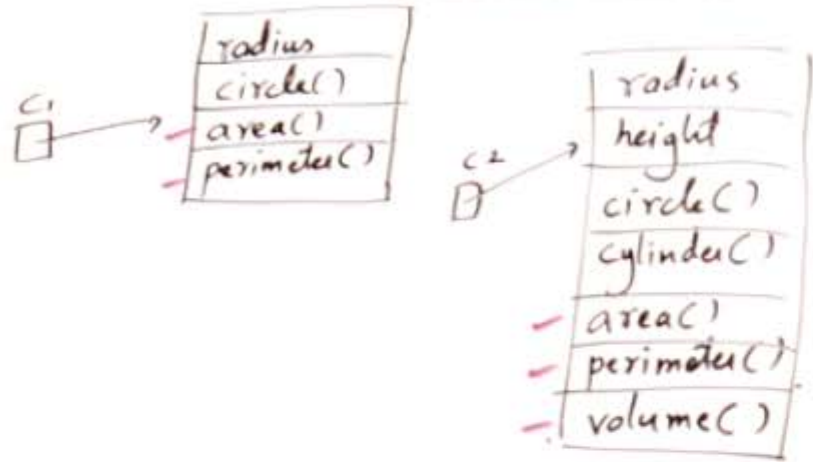 C1
radius
circle()
area()
perimeter()
C2
radius
height
circle()
cylinder()
area()
perimeter()
volume()